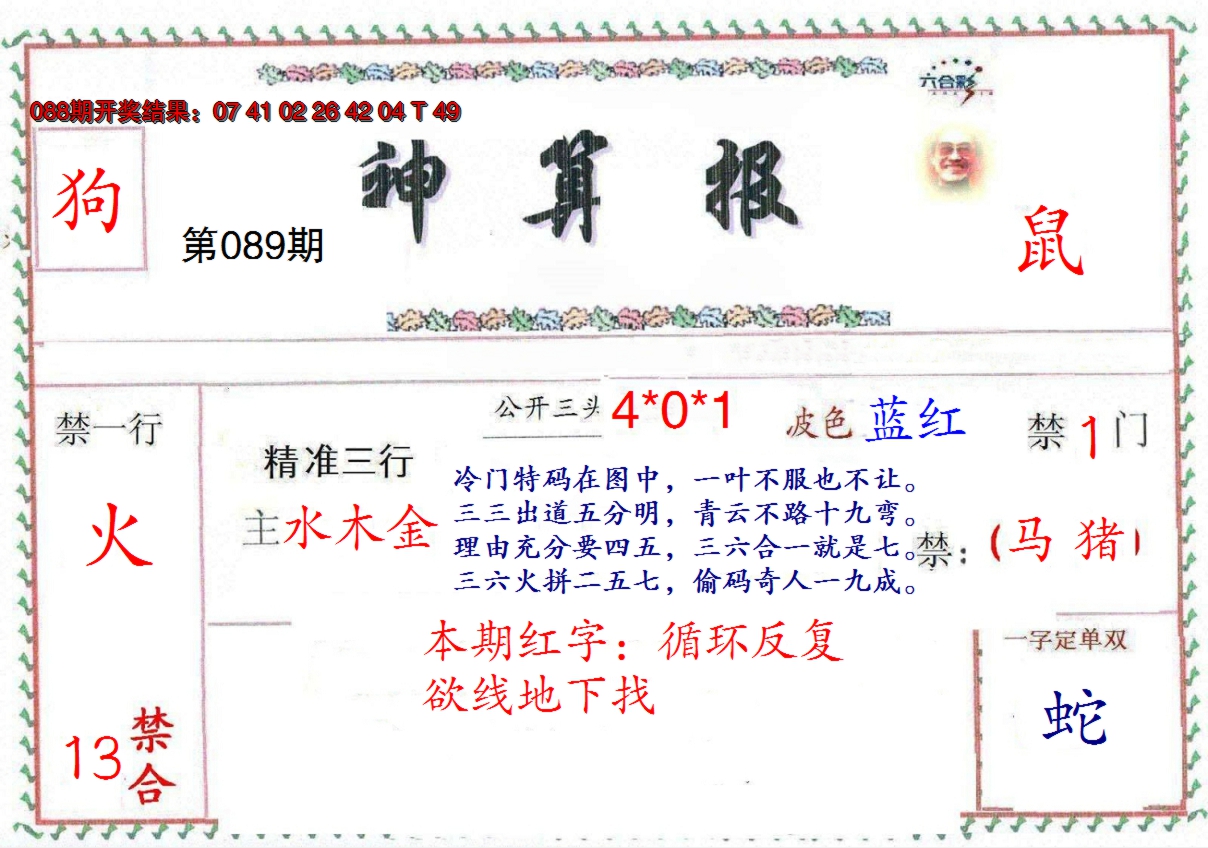 六合彩
088期开奖结果：07 41 02 26 42 04 T 49
神算报
狗
第089期
鼠
禁一行
火
13
禁合
精准三行
主水木金
公开三头 4*0*1
波色 蓝红
禁1门
冷门特码在图中，一叶不服也不让。
三三出道五分明，青云不路十九弯。
理由充分要四五，三六合一就是七。
三六火拼二五七，偷码奇人一九成。
禁：（马 猪）
本期红字：循环反复
欲线地下找
一字定单双
蛇